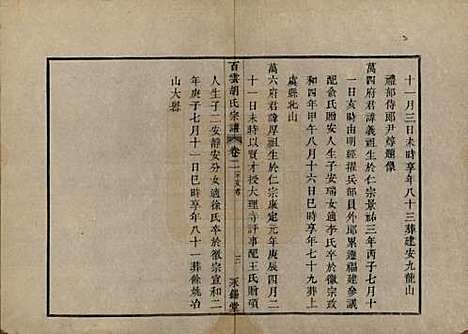 十一月三日未時享年八十三葬建安九龍山
禮部侍郎尹尊題像
萬四府君諱義祖生於仁宗景祐三年丙子七月十
一日亥時由明經擢兵部員外郎累遷福建參議
配俞氏贈安人生子安瑞女適李氏卒於徽宗政
和四年甲午八月十六日巳時享年七十九葬上
虞縣北山
萬六府君諱厚祖生於仁宗康定元年庚辰四月二
十一日未時以賢才授大理寺評事配王氏贈項
百雲胡氏宗譜 卷二 三 承錫堂
人生子二安靜安分女適徐氏卒於徽宗宣和二
年庚子七月十一日巳時享年八十一葬餘姚冶
山大塋